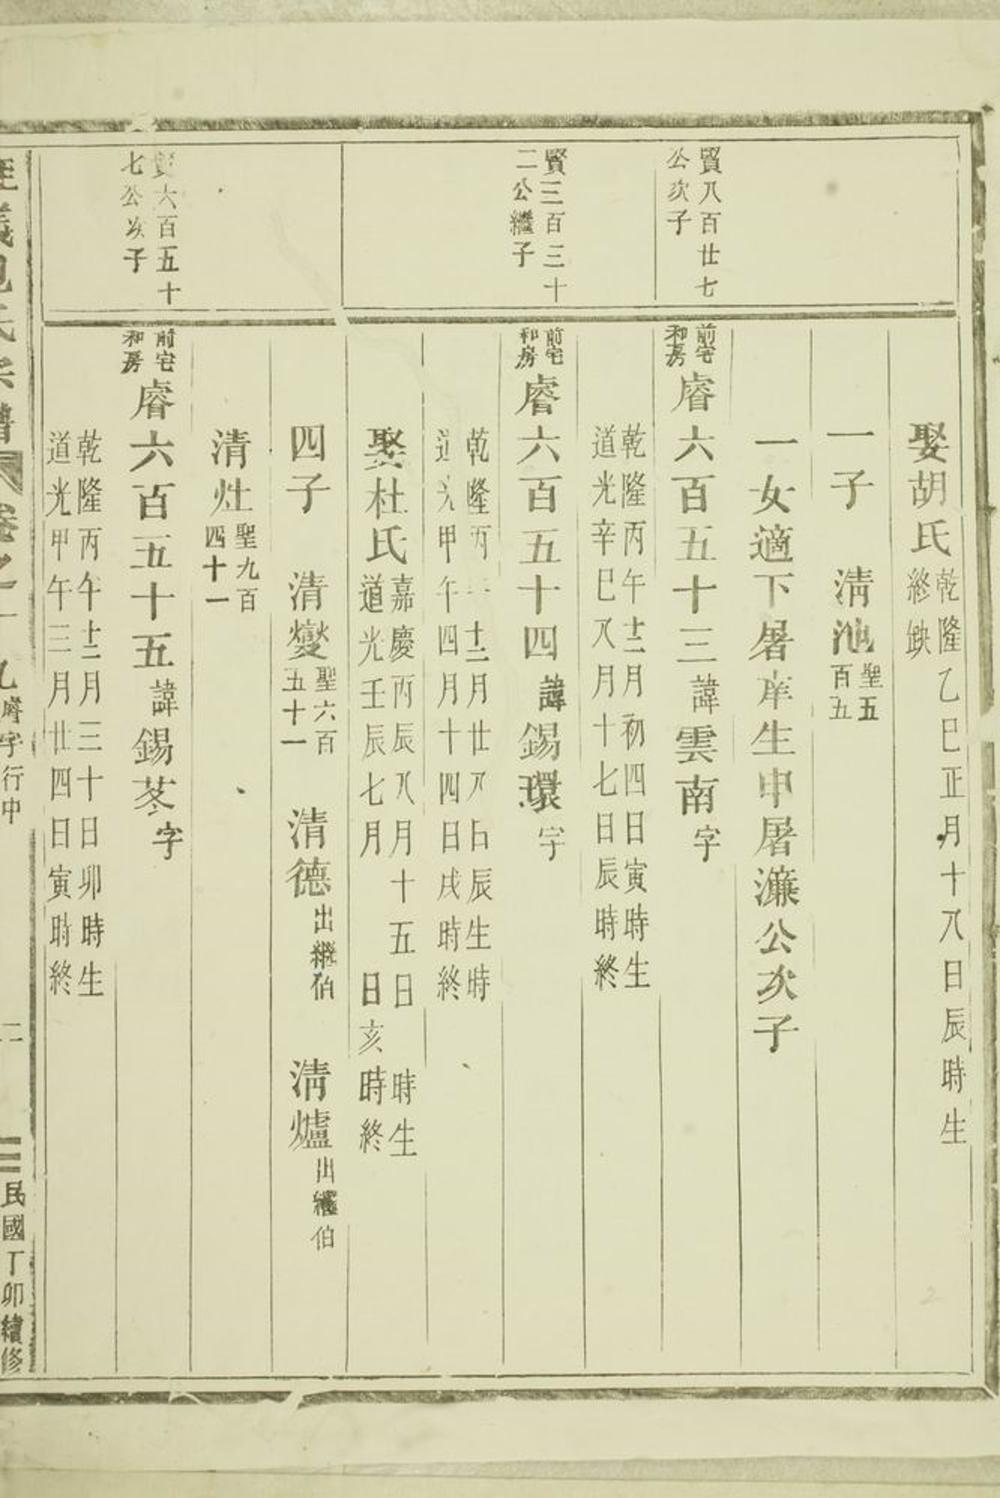 娶胡氏乾隆乙巳正月十八日辰時生
終缺
一子 淸池聖五
百五
一女適下屠庠生申屠濂公次子
賢八百廿七
公次子
前宅
和房
睿六百五十三諱雲南字
乾隆丙午十二月初四日寅時生
道光辛巳八月十七日辰時終
賢三百三十
二公繼子
前宅
和房
睿六百五十四諱錫環字
乾隆丙 十二月廿八日辰生時
道光甲午四月十四日戌時終
娶杜氏嘉慶丙辰八月十五日 時生
道光壬辰七月 日亥時終
四子 清燮聖六百
五十一
清德出繼伯 淸爐出繼伯
清灶聖九百
四十一
賢六百五十
七公次子
前宅
和房
睿六百五十五諱錫苳字
乾隆丙午十二月三十日卯時生
道光甲午三月廿四日寅時終
氏宗譜 卷之 睿字行中
二
民國丁卯續修